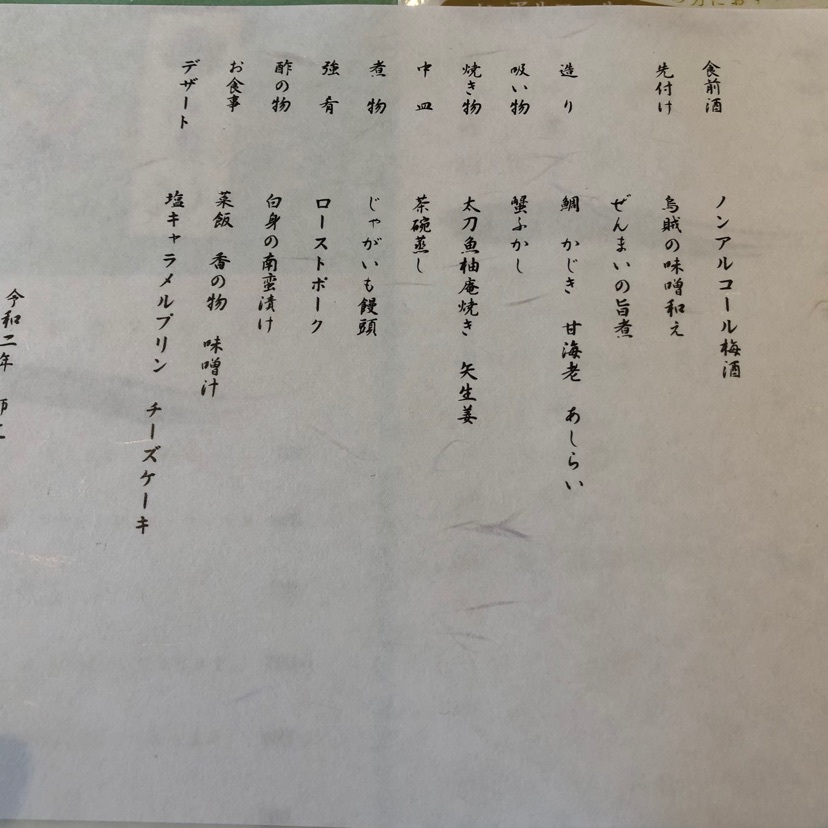 食前酒　ノンアルコール梅酒
先付け　烏賊の味噌和え
ぜんまいの旨煮
造り　鯛　かじき　甘海老　あしらい
吸い物　蟹ふかし
焼き物　太刀魚柚庵焼き　矢生姜
中皿　茶碗蒸し
煮物　じゃがいも饅頭
強肴　ローストポーク
酢の物　白身の南蛮漬け
お食事　菜飯　香の物　味噌汁
デザート　塩キャラメルプリン　チーズケーキ
令和二年